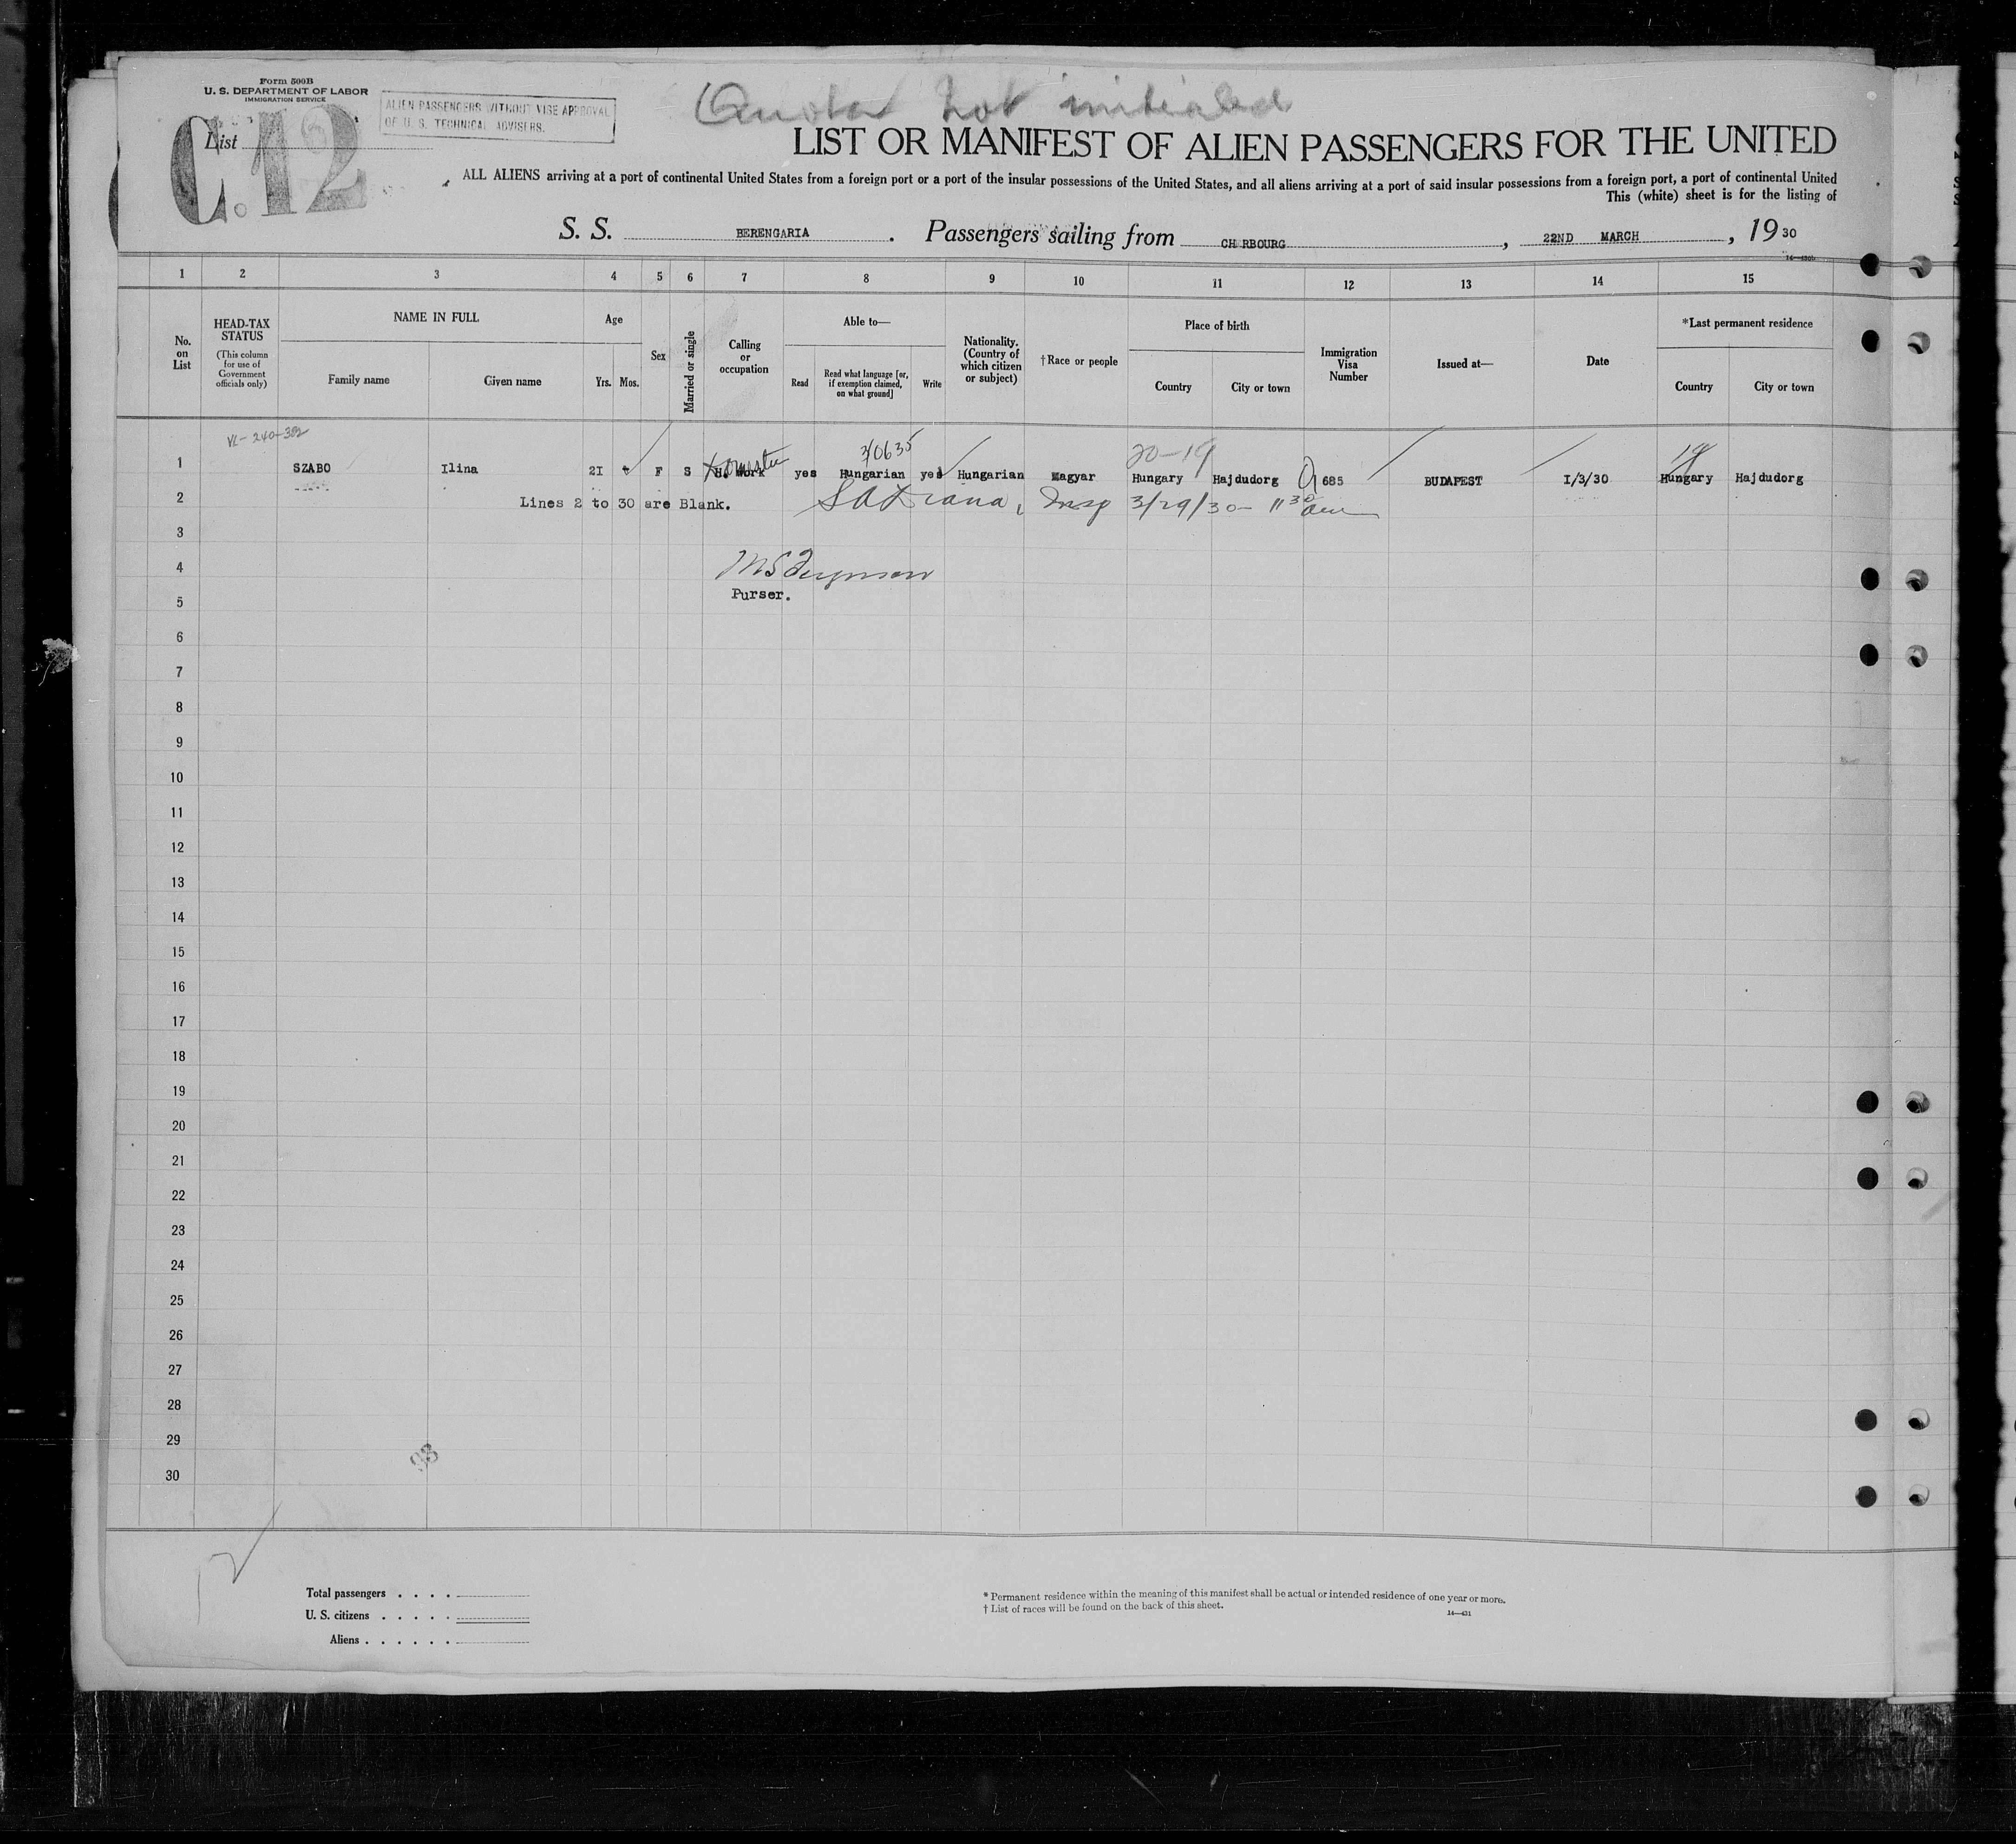 Form 500B
U. S. DEPARTMENT OF LABOR
IMMIGRATION SERVICE
List
C.12
ALIEN PASSENGERS WITHOUT VISE APPROVAL
OF U. S. TECHNICAL ADVISERS.
Quota not initialed
LIST OR MANIFEST OF ALIEN PASSENGERS FOR THE UNITED
ALL ALIENS arriving at a port of continental United States from a foreign port or a port of the insular possessions of the United States, and all aliens arriving at a port of said insular possessions from a foreign port, a port of continental United
This (white) sheet is for the listing of
S. S. BERENGARIA. Passengers sailing from CH RBOURG, 22ND MARCH, 19 30
1 2 3 4 5 6 7 8 9 10 11 12 13 14 15
No. on List
HEAD-TAX STATUS
(This column for use of Government officials only)
NAME IN FULL
Family name
Given name
Age
Yrs. Mos.
Sex
Married or single
Calling or occupation
Able to—
Read
Read what language [or, if exemption claimed, on what ground]
Write
Nationality. (Country of which citizen or subject)
†Race or people
Place of birth
Country
City or town
Immigration Visa Number
Issued at—
Date
*Last permanent residence
Country
City or town
30635
20-19
19
1 SZABO Ilina 21 F S H. Work Domestic yes Hungarian yes Hungarian Magyar Hungary Hajdudorg Q 685 BUDAPEST I/3/30 Hungary Hajdudorg
2 Lines 2 to 30 are Blank. Insp 3/29/30- 11 30 am
3
4
Purser.
5
6
7
8
9
10
11
12
13
14
15
16
17
18
19
20
21
22
23
24
25
26
27
28
29
30
98
12
Total passengers . . . .
U. S. citizens . . . . .
Aliens . . . . . .
* Permanent residence within the meaning of this manifest shall be actual or intended residence of one year or more.
† List of races will be found on the back of this sheet.
14—431